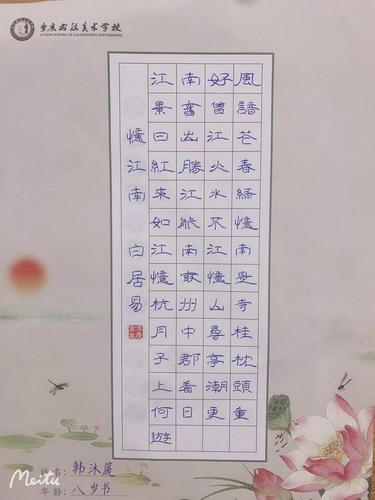 重庆书法美术学校
江南好風
景舊曾諳
日出江花
紅勝火春
來江水緑
如能不憶
江南江南
憶最憶是
杭州山寺
月中尋桂
子郡亭枕
上看潮頭
何日更重
遊
憶江南 白居易
姓名:韩沐
年龄:八岁书
Meitu